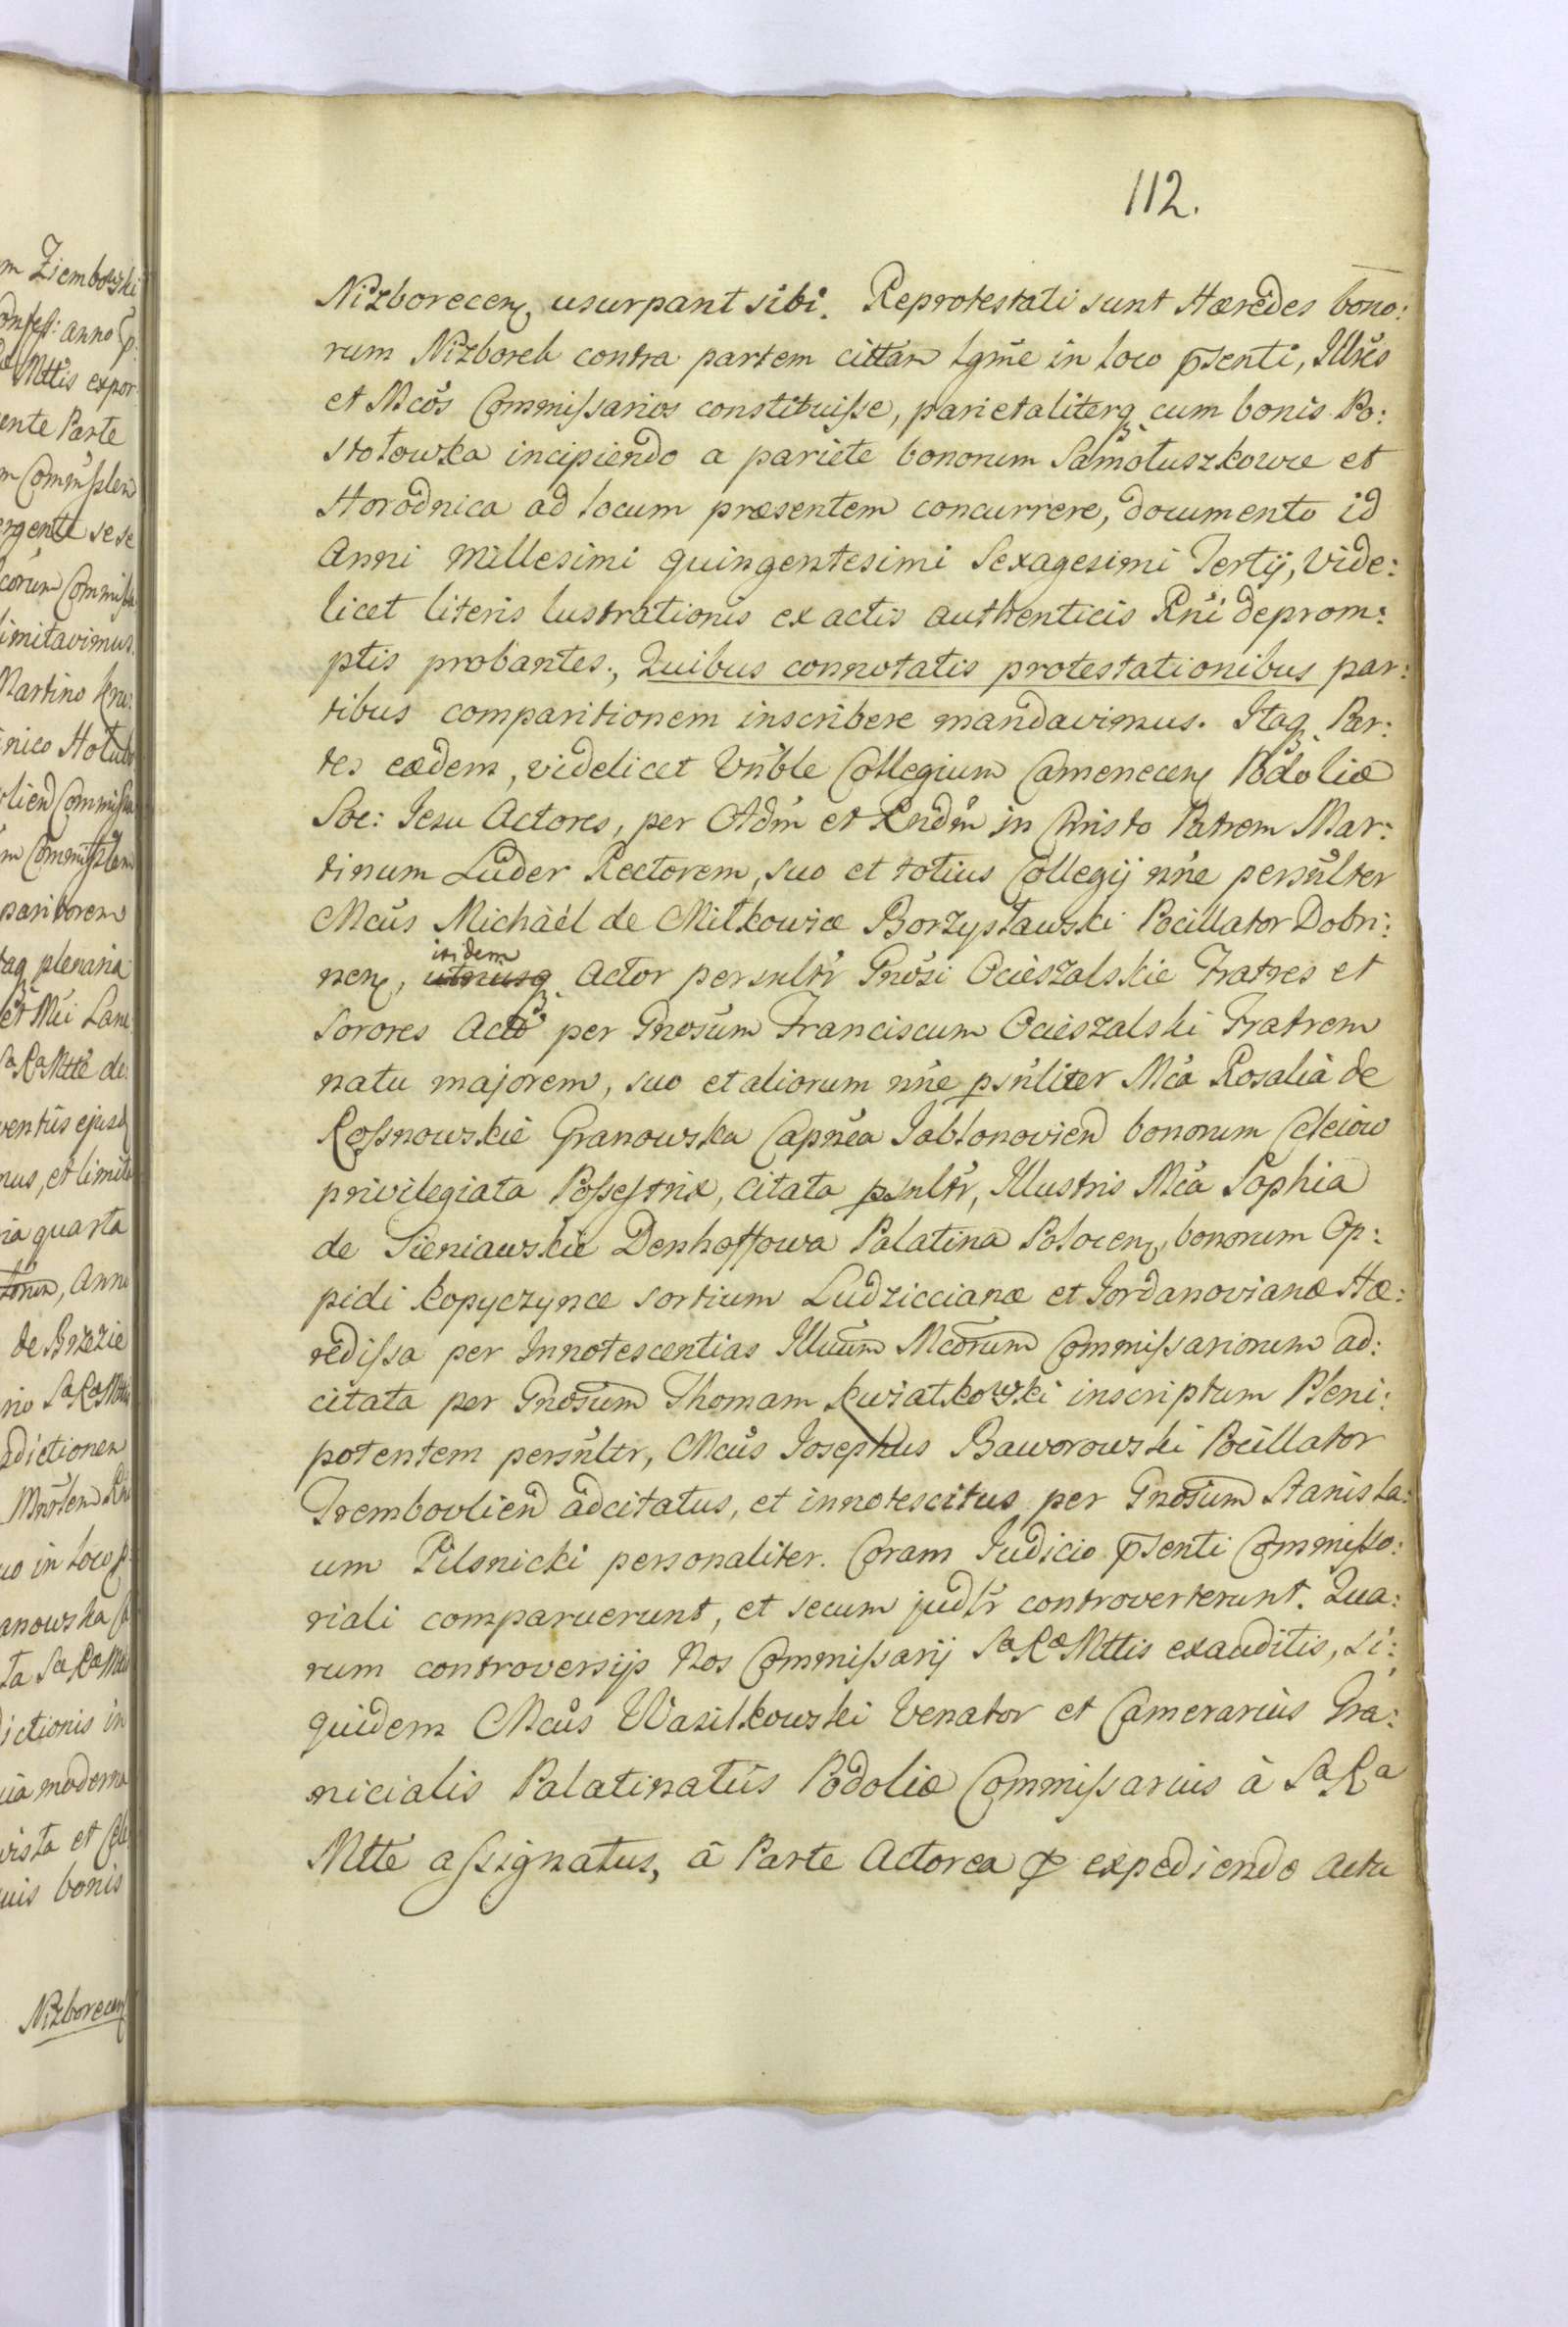 112.
m Ziembowski
Nizborecen, usurpant sibi. Reprotestati sunt Hæredes bono:
rum Nizboreh contra partem cittam lgme in loco psenti, Illres
et Mcos Commissarios constituisse, parietaliterq cum bonis Po:
stołowka incipiendo a pariete bonorum Samołuszkowce et
Horodnica ad locum præsentem concurrere, documento id
Anni Millesimi quingentesimi Sexagesimi Tertij, Vide:
licet literis lustrationis ex actis authenticis Rni deprom:
ptis probantes., Quibus connotatis protestationibus par:
tibus comparitionem inscribere mandavimus. Itaq Par:
tes eædem, videlicet Vnble Collegium Camenecen Podoliæ
Soc: Iesu Actores, per Adm et Rndm in Christo Patrem Mar:
tinum Luder Rectorem, suo et totius Collegij nne persnlter
Mcus Michaël de Miłkowice Borzysławski Pocillator Dobri:
nen, utrinsq indem Actor persnltr Gnosi Ocieszalskie Fratres et
Sorores Acto per Gnosum Franciscum Ocieszalski Fratrem
natu majorem, suo et aliorum nne psnliter Mca Rosalia de
Rossnowskie Granowska Capnea Jabłonovien bonorum Celeiow
privilegiata Possestrix, citata psnltr, Illustris Mca Sophia
de Sieniawskie Denhoffowa Palatina Polocen, bonorum Op:
pidi Kopyczynce sortium Ludziccianæ et Jordanovianæ Hæ:
redissa per Innotescentias Illuum Mcorum Commissariorum ad:
citata per Gnosum Thomam Kwiatkowski inscriptum Pleni:
potentem persnltr, Mcus Iosephus Baworowski Pocillator
Trembovlien adcitatus, et innotescitus per Gnosum Stanisla:
um Pilsnicki personaliter. Coram Iudicio psenti Commisso:
riali comparuerunt, et secum judlr controverterunt. Qua:
rum controversijs Nos Commissarij Sa Ræ Mttis exauditis, si:
quidem Mcus Wasilkowski Venator et Camerarius Gra:
nicialis Palatinatus Podoliæ Commissarius à Sa Ra
Mtte assignatus, â Parte Actorea p expediendo actu
Mttis expor
ente Parte
limitavimus.
Martino
paritorem
plenaria
ia quarta
de Brzezie
dictionen
anowska
ictionis in
ia moderna
uis bonis
Nizborecen